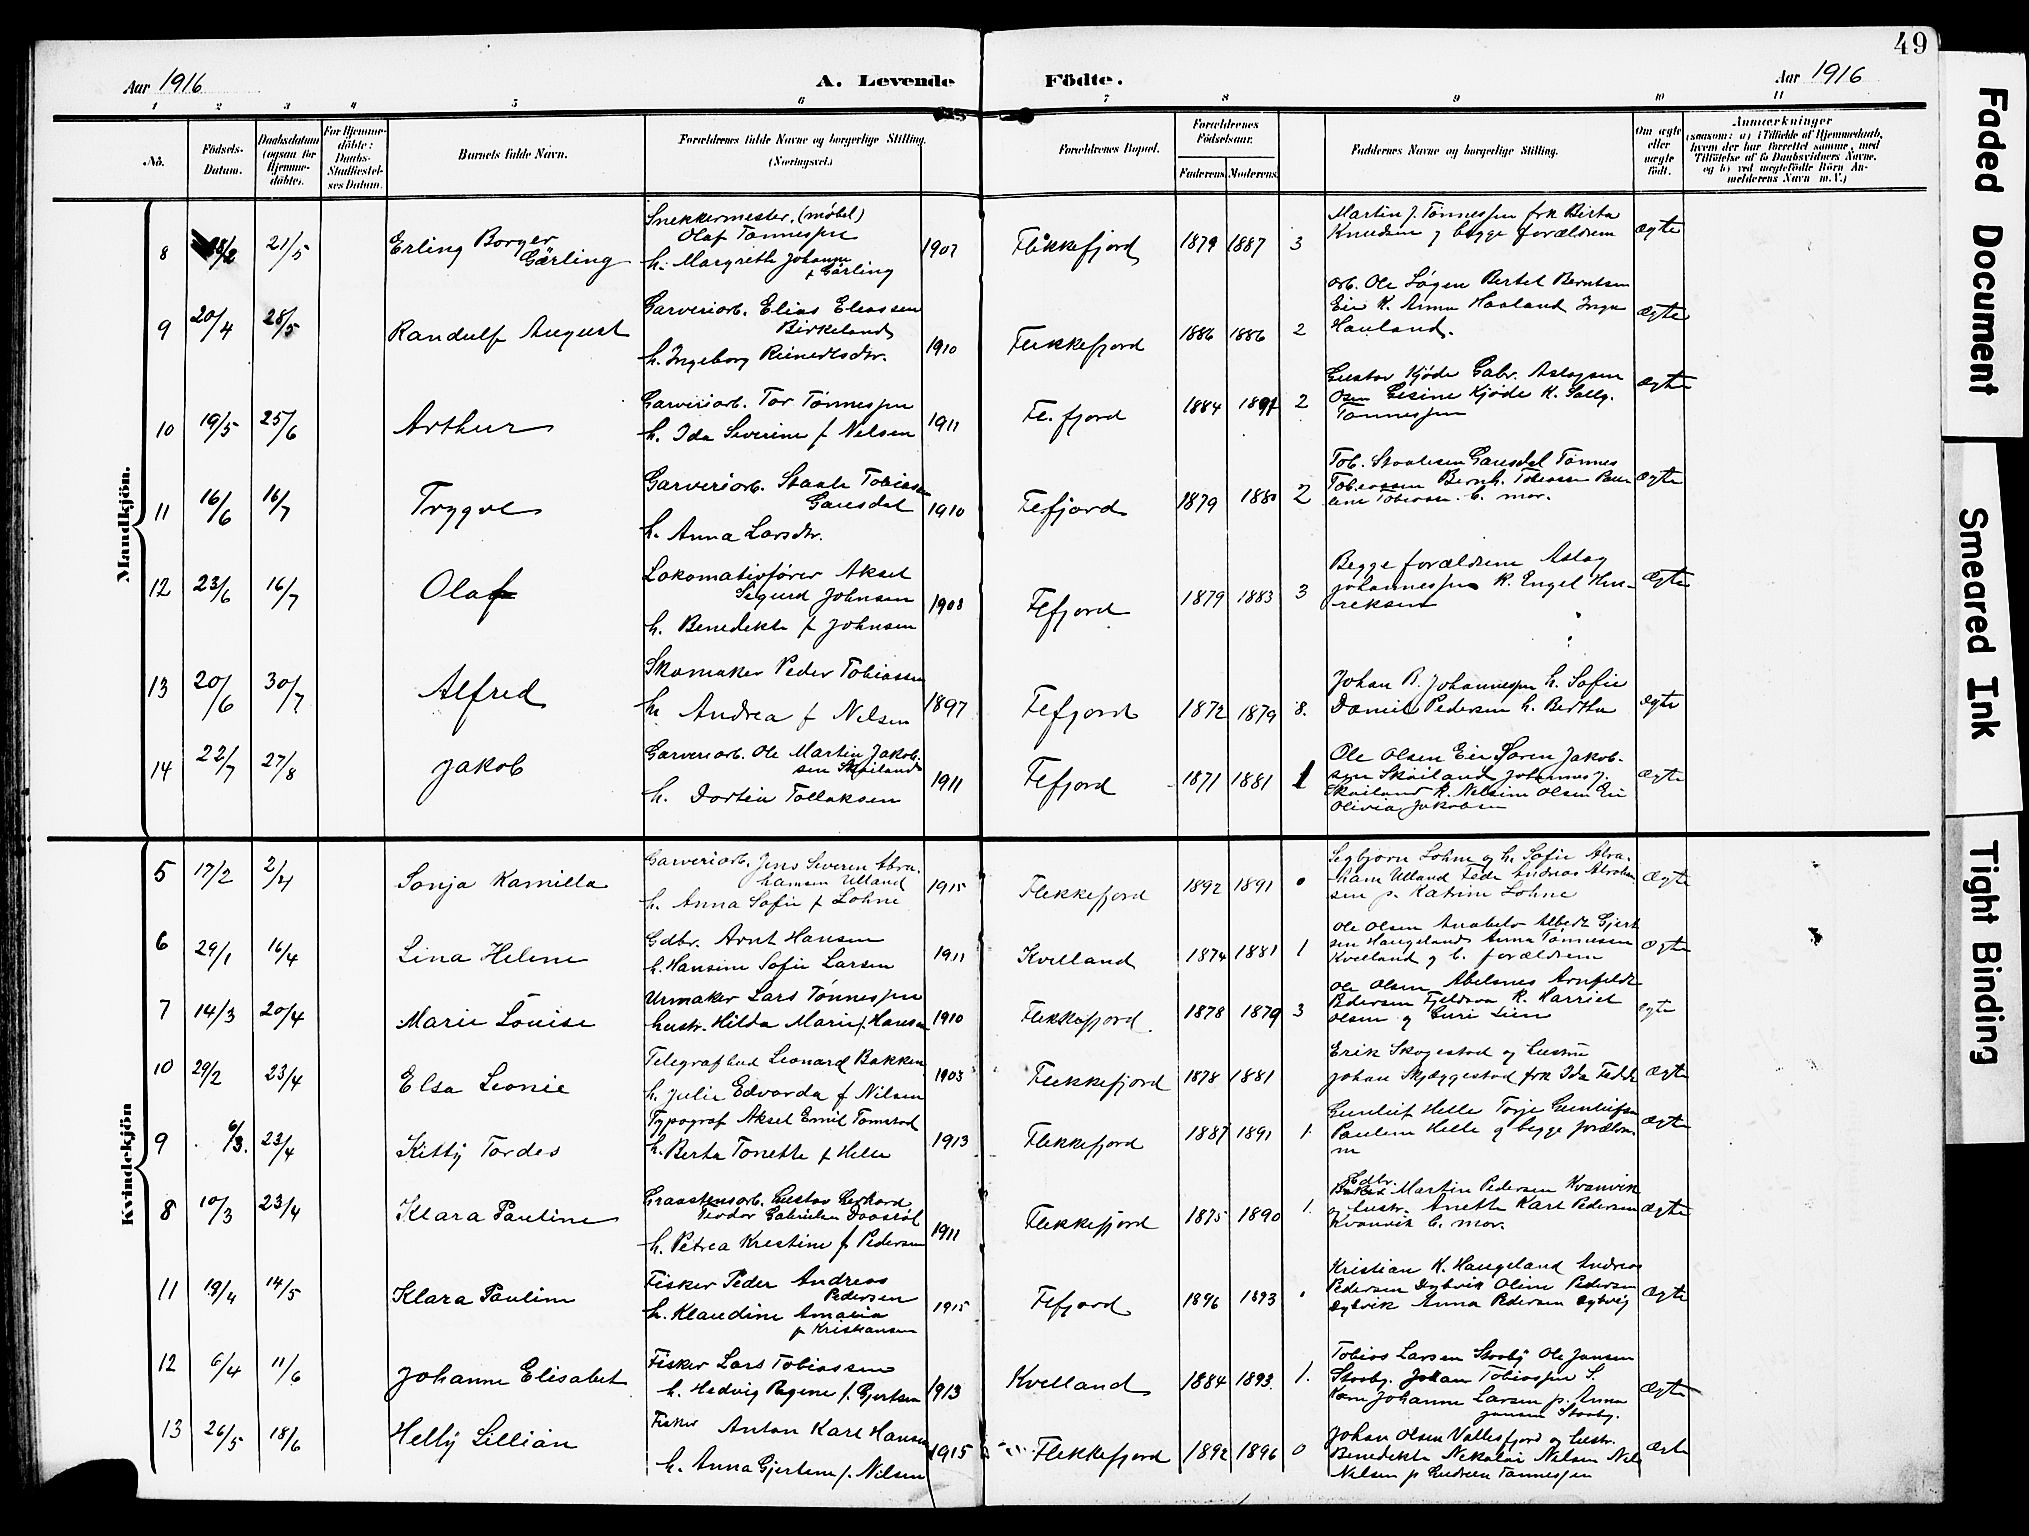 49
Aar 1916 A. Levende Födte. Aar 1916
1 2 3 4 5 6 7 8 9 10 11
No. Födsels-Datum. Daabsdatum (ogsaa for Hjemmedöbte). For Hjemmedöbte: Daabs-Stadfæstelses Datum. Barnets fulde Navn. Forældrenes fulde Navne og borgerlige Stilling. (Næringsvei.) Forældrenes Bopæl. Forældrenes Födselsaar. Faderens. Moderens. Faddernes Navne og borgerlige Stilling. Om ægte eller uægte født. Anmærkninger
(saasom: a) i Tilfælde af Hjemmedaab,
hvem der har forrettet samme, med
Tilföielse af to Daabsvidners Navne,
og b) ved uægtefödte Börn Anmelderens Navn m.V.)
Mandkjön.
8 13/2 21/5 Erling Borger Gærling
Snekkermester. (møbel)
Olaf Tønnessen
h. Margrethe Johanne
f Gärling 1907
Flekkefjord 1879 1887 3
Martin J. Tønnessen frk Berta
Knudsen og begge forældrene ægte
9 20/4 28/5 Randulf August
Garveriarb. Elias Eliassen
Birkeland
h. Ingeborg Reinertsdtr. 1910
Flekkefjord 1886 1886 2
arb. Ole Løgen Bertel Berntsen
Eie K. Anna Haaland Inga
Hauland. ægte
10 19/5 25/6 Arthur
Garveriarb. Tor Tønnessen
h. Ida Severine f Nelsen 1911
Fl.fjord 1884 1891 2
Gustav Kjøde Gabr. Aslagsen
Osen Gesine Kjøde K. Sally.
Tønnessen ægte
11 16/6 16/7 Trygve
Garveriarb. Staale Tobiassen
Gausdal
h. Anna Larsdtr. 1910
Flfjord 1879 1880 2
Tob. Staalesen Gausdal Tønnes
Tobiassen Bernh. Tobiassen Pau-
line Tobiassen b. mor. ægte
12 23/6 16/7 Olaf
Lokomativfører Aksel
Sigurd Johnsen
h. Benedikte f Johnsen 1908
Flfjord 1879 1883 3
Begge forældrene Aslag
Johannessen K. Engel Hen-
reksen ægte
13 20/6 30/7 Alfred
Skomaker Peder Tobiassen
h. Andrea f Nelsen 1897
Flfjord 1872 1879 8.
Johan B. Johannessen h. Sofie
Daniel Pedersen h. Bertha ægte
14 22/7 27/8 Jakob
Garveriarb. Ole Martin Jakob-
sen Skailand
h. Dortea Tollaksen 1911
Flfjord 1871 1881 1
Ole Olsen Eie Søren Jakob-
sen Skailand Johannes J.
Skailand K. Nelsine Olsen Eie
Olivia Jakobsen ægte
Kvindekjön
5 17/2 2/4 Sonja Kamilla
Garveriarb. Jens Severin Abra-
hamsen Ulland
h. Anna Sofie f Lohne 1915
Flekkefjord 1892 1891 0
Segbjørn Lohne og h. Sofie Abra-
ham Ulland Fede Andreas Abraham
sen p. Katrine Lohne ægte
6 29/1 16/4 Lina Helene
Gdbr. Arnt Hansen
h. Hansine Sofie Larsen 1911
Kvelland 1874 1881 1
Ole Olsen Anabelø Albert Gjert
sen Haugeland Anna Tønnesen
Kvelland og b. forældrene ægte
7 14/3 20/4 Marie Louise
Urmaker Lars Tønnessen
hustr. Hilda Marie f. Hansen 1910
Flekkefjord. 1878 1879 3
Ole Olsen Abelsnes Arnfeldt
Pedersen Fjeldsaa K. Harriet
Olsen og Guri Lien ægte
10 29/2 23/4 Elsa Leonie
Telegrafbud Leonard Bakken
h. Julie Edvarda f Nilsen 1903
Flekkefjord 1878 1881
Erik Skogestad og hustru
Johan Skjæggestad frk Ida Fedde ægte
9 6/3. 23/4 Kitty Tordes
Typograf Aksel Emil Tomstad
h. Berta Tonette f Helle 1913
Flekkefjord 1887 1891 1.
Gunleif Helle Torje Gunleifsen
Pauline Helle og begge forældre
ne ægte
8 10/3 23/4 Klara Pauline
Graastensarb. Gustav Gerhard
Teodor Gabrielsen
h. Petrea Kristine f Pedersen 1911
Flekkefjord 1875 1890 1.
Gdbr.
Martin Pedersen Kvanvik
og hustr. Anette Karl Pedersen
Kvanvik b. mor. ægte
11 19/4 14/5 Klara Pauline
Fisker Peder Andreas
Pedersen
h. Klaudine Amalia
f Kristiansen 1915
Flfjord 1896 1893
Kristian K. Haugeland Andreas
Pedersen Dybvik Oline Pedersen
Dybvik Anna Pedersen Dybvig ægte
12 6/4 11/6 Johanne Elisabet
Fisker Lars Tobiassen
h. Hedvig Regine f. Gjertsen 1913
Kvelland 1884 1893. 1.
Tobias Larsen Stosby Ole Jansen
Stosby. Johan Tobiassen S.
Kone Johanne Larsen p. Anna
Jansen Stosby. ægte
13 26/5 18/6 Helly Lillian
Fisker Anton Karl Hansen
h. Anna Gjertine f. Nilsen 1915
Flekkefjord 1892 1896 0
Johan Olsen Vallesfjord og hustr.
Benedikte Nekolai Nelsen Nels
Nelsen p Gudrun Tønnessen ægte
Faded Document
Smeared Ink
Tight Binding